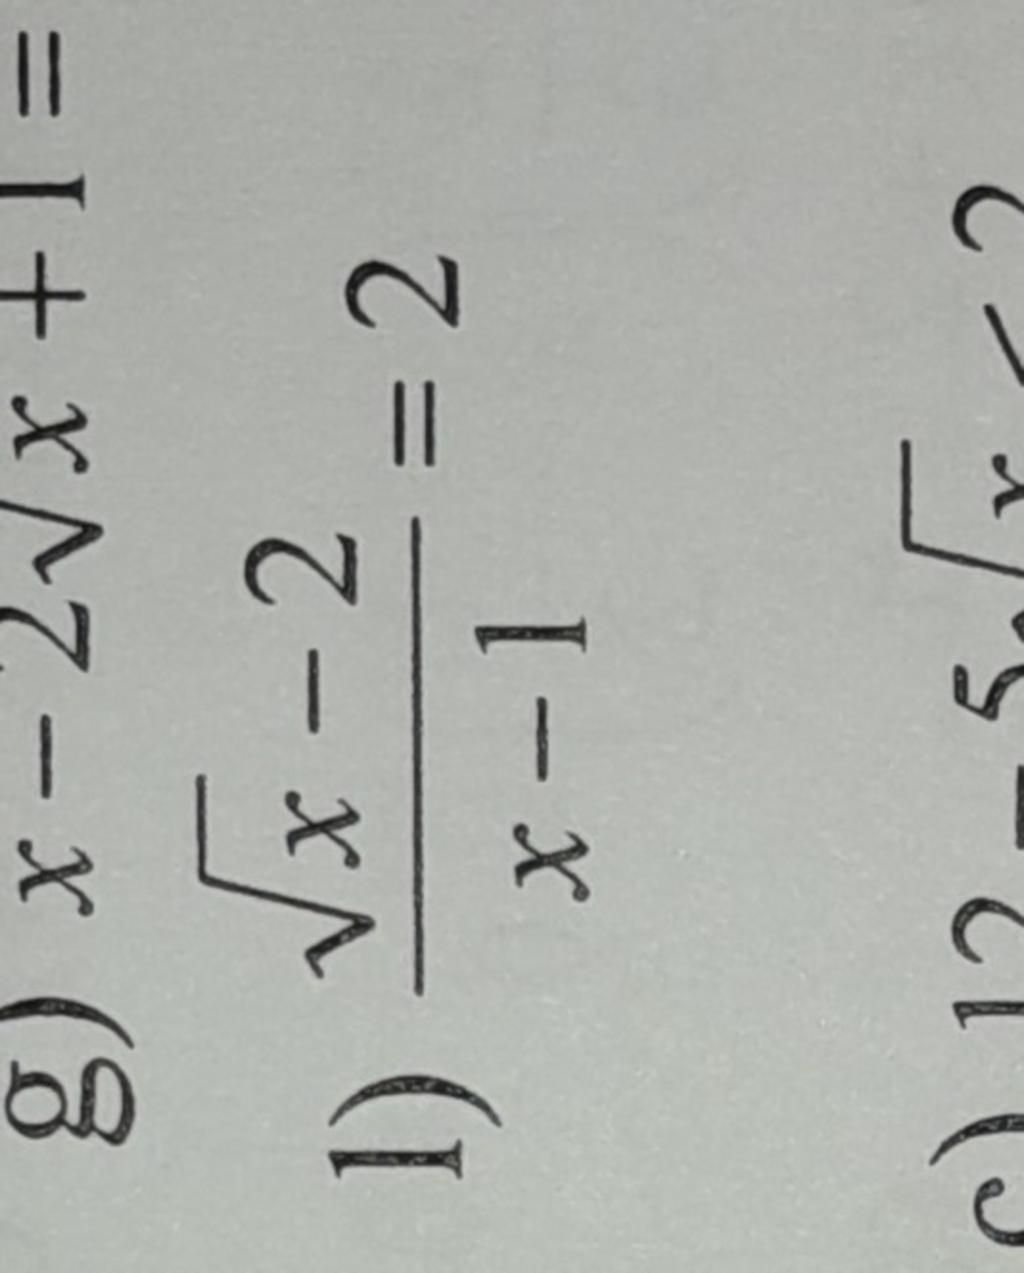 g) x − 2√x + 1 =
l) (√x − 2)/(x − 1) = 2
c) 12 − 5√x